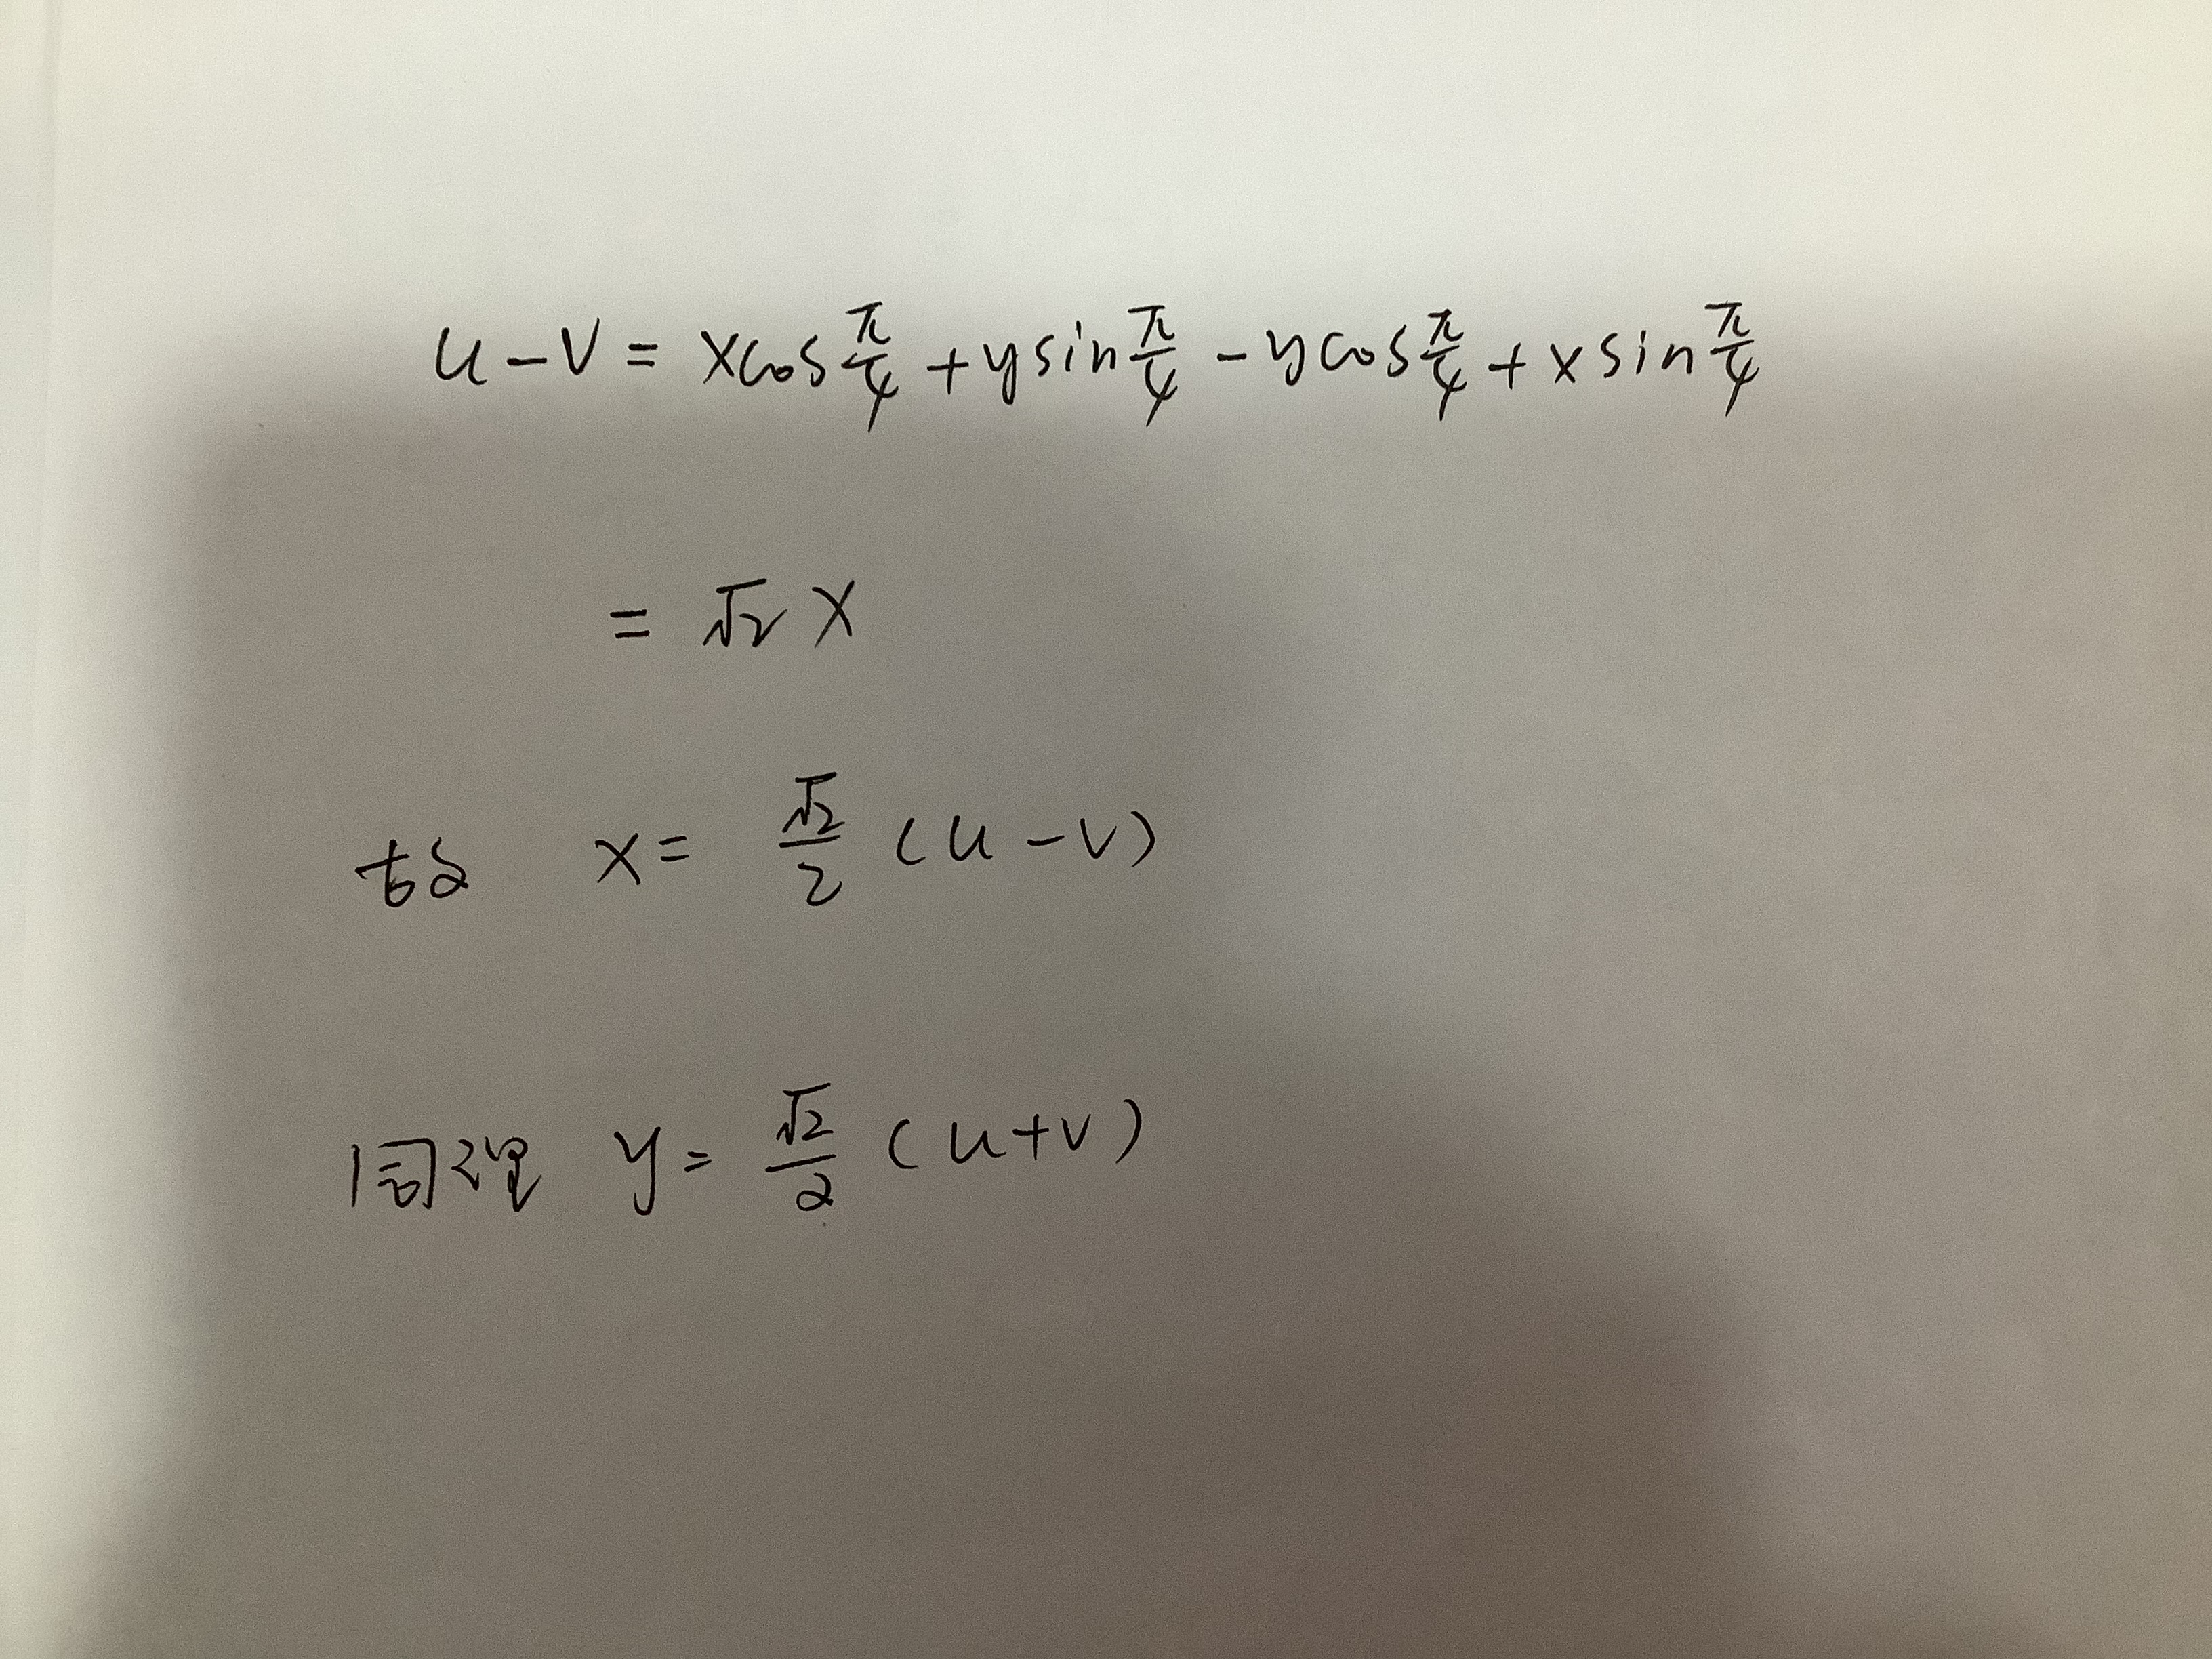 u-v = xcos π/4 + ysin π/4 - ycos π/4 + xsin π/4
= √2 x
故 x = √2/2 (u-v)
同理 y = √2/2 (u+v)